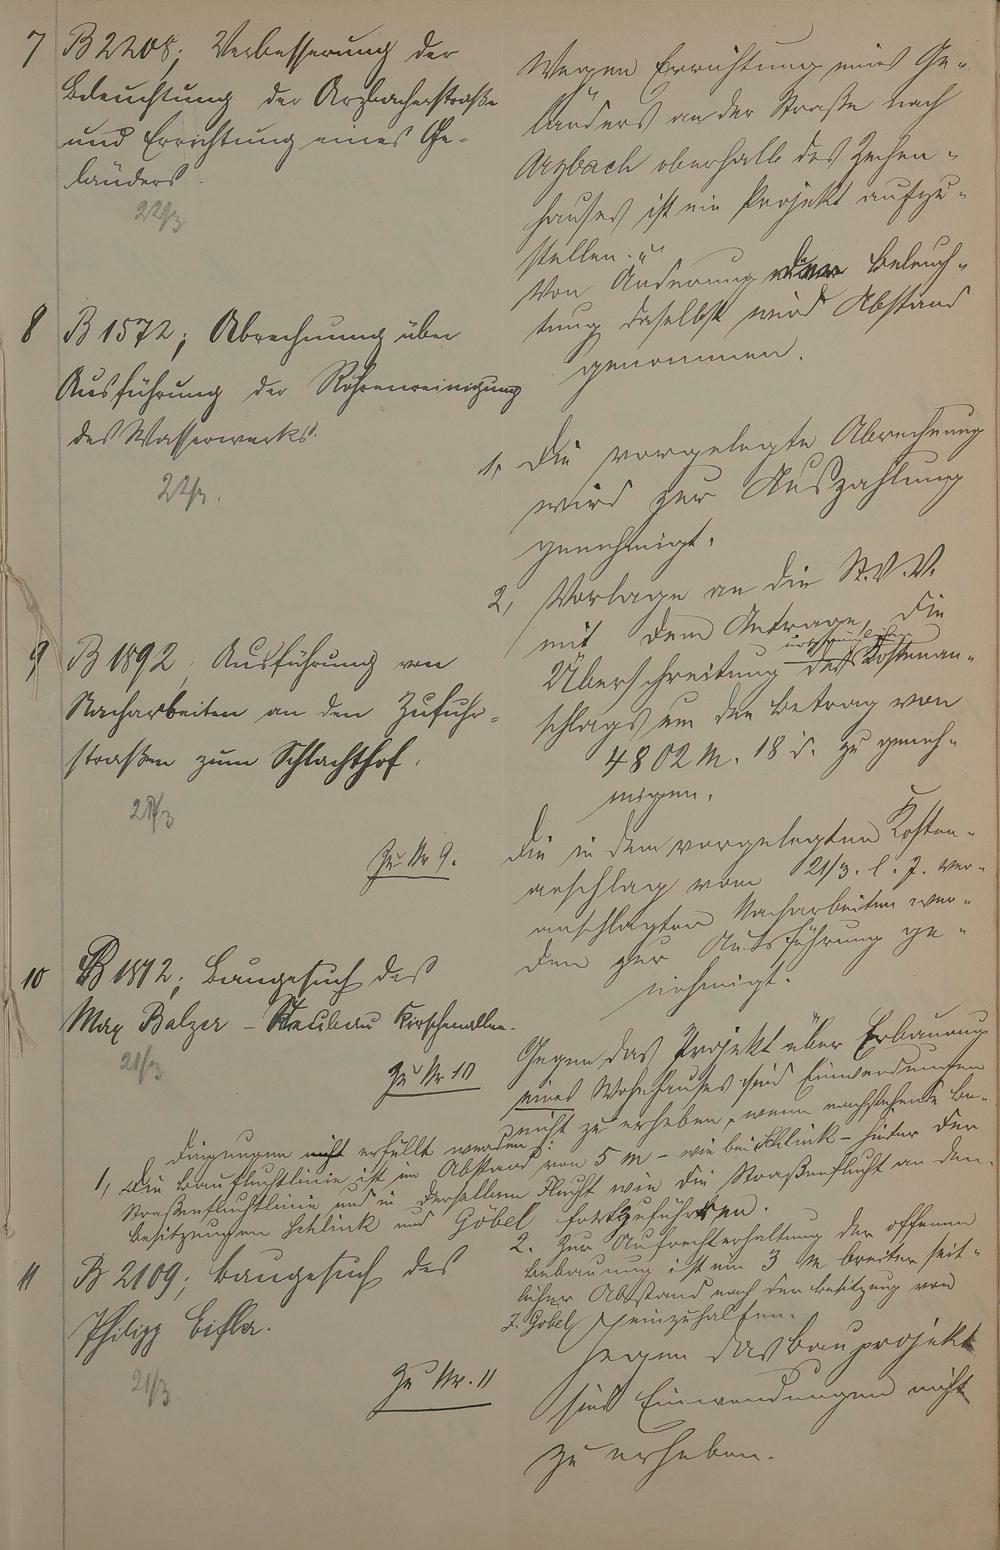 7 B 2208; Verbesserung der
Beleuchtung der Arzbacherstraße
und Errichtung eines Ge-
länders.
22/3
Wegen Errichtung eines Ge-
länders an der Straße nach
Arzbach oberhalb des Zechen-
hauses ist ein Projekt aufzu-
stellen.
Von Änderung der Beleuch-
tung daselbst wird Abstand
genommen.
8 B 1572; Abrechnung über
Ausführung der Rohrenreinigung
des Wasserwerks.
22/3.
1, Die vorgelegte Abrechnung
wird zur Auszahlung
genehmigt.
2, Vorlage an die St.V.V.
mit dem Antrage, die
Überschreitung des Kostenan-
schlags um den Betrag von
4802 M. 18 d. zu geneh-
migen.
9 B 1892; Ausführung von
Nacharbeiten an den Zufuhr-
straßen zum Schlachthof.
21/3
Zu Nr 9.
Die in dem vorgelegten Kosten-
anschlag vom 21/3. l. J. ver-
anschlagten Nacharbeiten wer-
den zur Ausführung ge-
nehmigt.
10 B 1872; Baugesuch des
Max Balzer - Neubau Kirschenallee.
21/3
Zu Nr 10
Gegen das Projekt über Erbauung
eines Wohnhauses sind Einwendungen
nicht zu erheben, wenn nachstehende Be-
dingungen nicht erfüllt werden:
1, Die Baufluchtlinie ist im Abstand von 5 m - wie bei Schlink - hinter der
Straßenfluchtlinie und in derselben Flucht wie die Straßenflucht an den
Besitzungen Schlink und Göbel fortzuführen.
2. Zur Aufrechterhaltung der offenen
Bebauung ist ein 3 m breiter seit-
licher Abstand nach der Besitzung von
J. Göbel einzuhalten.
11 B 2109; Baugesuch des
Philipp Eisler.
21/3
Zu Nr. 11
Gegen das Bauprojekt
sind Einwendungen nicht
zu erheben.